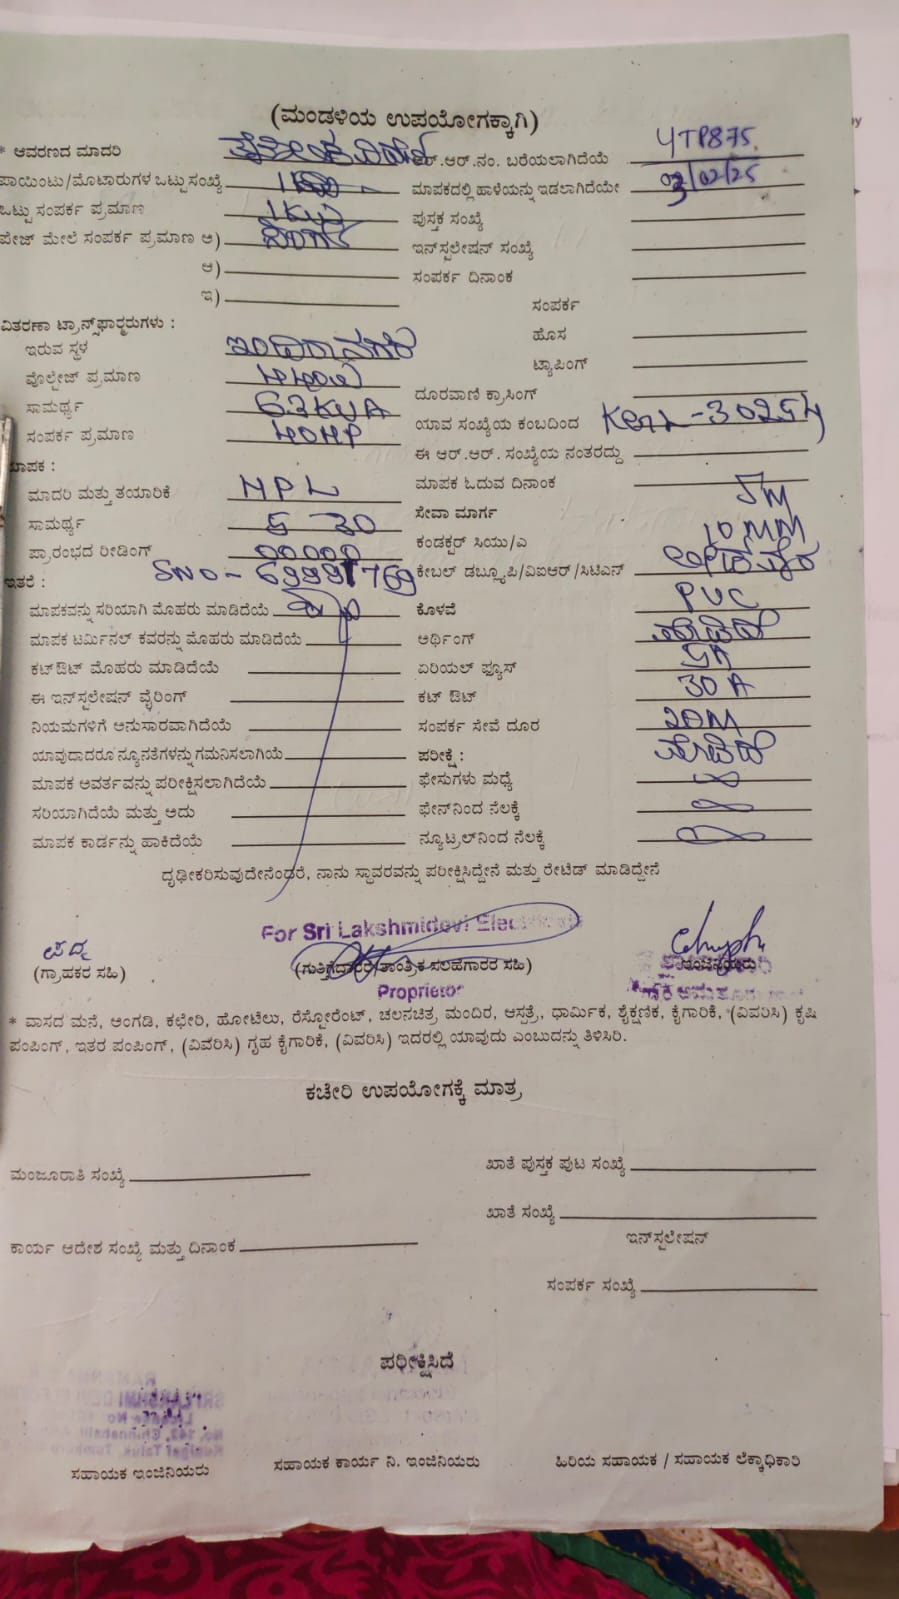 (ಮಂಡಳಿಯ ಉಪಯೋಗಕ್ಕಾಗಿ)
* ಆವರಣದ ಮಾದರಿ ಆರ್.ಆರ್.ನಂ. ಬರೆಯಲಾಗಿದೆಯೆ YTP875
ಪಾಯಿಂಟು/ಮೊಟಾರುಗಳ ಒಟ್ಟು ಸಂಖ್ಯೆ ಮಾಪಕದಲ್ಲಿ ಹಾಳೆಯನ್ನು ಇಡಲಾಗಿದೆಯೇ 03/02/25
ಒಟ್ಟು ಸಂಪರ್ಕ ಪ್ರಮಾಣ 1KW ಪುಸ್ತಕ ಸಂಖ್ಯೆ
ಪೇಜ್ ಮೇಲೆ ಸಂಪರ್ಕ ಪ್ರಮಾಣ ಅ) ಇನ್‌ಸ್ಟಲೇಷನ್ ಸಂಖ್ಯೆ
ಆ) ಸಂಪರ್ಕ ದಿನಾಂಕ
ಇ) ಸಂಪರ್ಕ
ವಿತರಣಾ ಟ್ರಾನ್ಸ್‌ಫಾರ್ಮರುಗಳು : ಹೊಸ
ಇರುವ ಸ್ಥಳ ಇಂದಿರಾನಗರ ಟ್ಯಾಪಿಂಗ್
ವೊಲ್ಟೇಜ್ ಪ್ರಮಾಣ ದೂರವಾಣಿ ಕ್ರಾಸಿಂಗ್
ಸಾಮರ್ಥ್ಯ 63KVA ಯಾವ ಸಂಖ್ಯೆಯ ಕಂಬದಿಂದ
ಸಂಪರ್ಕ ಪ್ರಮಾಣ 40HP ಈ ಆರ್.ಆರ್. ಸಂಖ್ಯೆಯ ನಂತರದ್ದು
ಮಾಪಕ : ಮಾಪಕ ಓದುವ ದಿನಾಂಕ
ಮಾದರಿ ಮತ್ತು ತಯಾರಿಕೆ HPL ಸೇವಾ ಮಾರ್ಗ 5M
ಸಾಮರ್ಥ್ಯ 5 30 ಕಂಡಕ್ಟರ್ ಸಿಯು/ಎ 10MM
ಪ್ರಾರಂಭದ ರೀಡಿಂಗ್ 00000 ಕೇಬಲ್ ಡಬ್ಲ್ಯೂಪಿ/ವಿಐಆರ್/ಸಿಟಿಎಸ್
ಇತರೆ : SNO-
ಮಾಪಕವನ್ನು ಸರಿಯಾಗಿ ಮೊಹರು ಮಾಡಿದೆಯೆ ಕೊಳವೆ PVC
ಮಾಪಕ ಟರ್ಮಿನಲ್ ಕವರನ್ನು ಮೊಹರು ಮಾಡಿದೆಯೆ ಅರ್ಥಿಂಗ್
ಕಟ್‌ಔಟ್ ಮೊಹರು ಮಾಡಿದೆಯೆ ಏರಿಯಲ್ ಫ್ಯೂಸ್ 5A
ಈ ಇನ್‌ಸ್ಟಲೇಷನ್ ವೈರಿಂಗ್ ಕಟ್ ಔಟ್ 30A
ನಿಯಮಗಳಿಗೆ ಅನುಸಾರವಾಗಿದೆಯೆ ಸಂಪರ್ಕ ಸೇವೆ ದೂರ 20M
ಯಾವುದಾದರೂ ನ್ಯೂನತೆಗಳನ್ನು ಗಮನಿಸಲಾಗಿಯೆ ಪರೀಕ್ಷೆ :
ಮಾಪಕ ಆವರ್ತವನ್ನು ಪರೀಕ್ಷಿಸಲಾಗಿದೆಯೆ ಫೇಸುಗಳು ಮಧ್ಯೆ
ಸರಿಯಾಗಿದೆಯೆ ಮತ್ತು ಅದು ಫೇಸ್‌ನಿಂದ ನೆಲಕ್ಕೆ
ಮಾಪಕ ಕಾರ್ಡನ್ನು ಹಾಕಿದೆಯೆ ನ್ಯೂಟ್ರಲ್‌ನಿಂದ ನೆಲಕ್ಕೆ
ದೃಢೀಕರಿಸುವುದೇನೆಂದರೆ, ನಾನು ಸ್ಥಾವರವನ್ನು ಪರೀಕ್ಷಿಸಿದ್ದೇನೆ ಮತ್ತು ರೇಟಿಡ್ ಮಾಡಿದ್ದೇನೆ
For Sri Lakshmidevi Electricals
(ಗ್ರಾಹಕರ ಸಹಿ) (ಗುತ್ತಿಗೆದಾರರ/ತಾಂತ್ರಿಕ ಸಲಹೆಗಾರರ ಸಹಿ)
Proprietor
* ವಾಸದ ಮನೆ, ಅಂಗಡಿ, ಕಛೇರಿ, ಹೋಟೆಲು, ರೆಸ್ಟೋರೆಂಟ್, ಚಲನಚಿತ್ರ ಮಂದಿರ, ಆಸ್ಪತ್ರೆ, ಧಾರ್ಮಿಕ, ಶೈಕ್ಷಣಿಕ, ಕೈಗಾರಿಕೆ, (ವಿವರಿಸಿ) ಕೃಷಿ
ಪಂಪಿಂಗ್, ಇತರ ಪಂಪಿಂಗ್, (ವಿವರಿಸಿ) ಗೃಹ ಕೈಗಾರಿಕೆ, (ವಿವರಿಸಿ) ಇದರಲ್ಲಿ ಯಾವುದು ಎಂಬುದನ್ನು ತಿಳಿಸಿರಿ.
ಕಚೇರಿ ಉಪಯೋಗಕ್ಕೆ ಮಾತ್ರ
ಮಂಜೂರಾತಿ ಸಂಖ್ಯೆ ಖಾತೆ ಪುಸ್ತಕ ಪುಟ ಸಂಖ್ಯೆ
ಖಾತೆ ಸಂಖ್ಯೆ
ಕಾರ್ಯ ಆದೇಶ ಸಂಖ್ಯೆ ಮತ್ತು ದಿನಾಂಕ ಇನ್‌ಸ್ಟಲೇಷನ್
ಸಂಪರ್ಕ ಸಂಖ್ಯೆ
ಪರೀಕ್ಷಿಸಿದೆ
ಸಹಾಯಕ ಇಂಜಿನಿಯರು ಸಹಾಯಕ ಕಾರ್ಯ ನಿ. ಇಂಜಿನಿಯರು ಹಿರಿಯ ಸಹಾಯಕ / ಸಹಾಯಕ ಲೆಕ್ಕಾಧಿಕಾರಿ